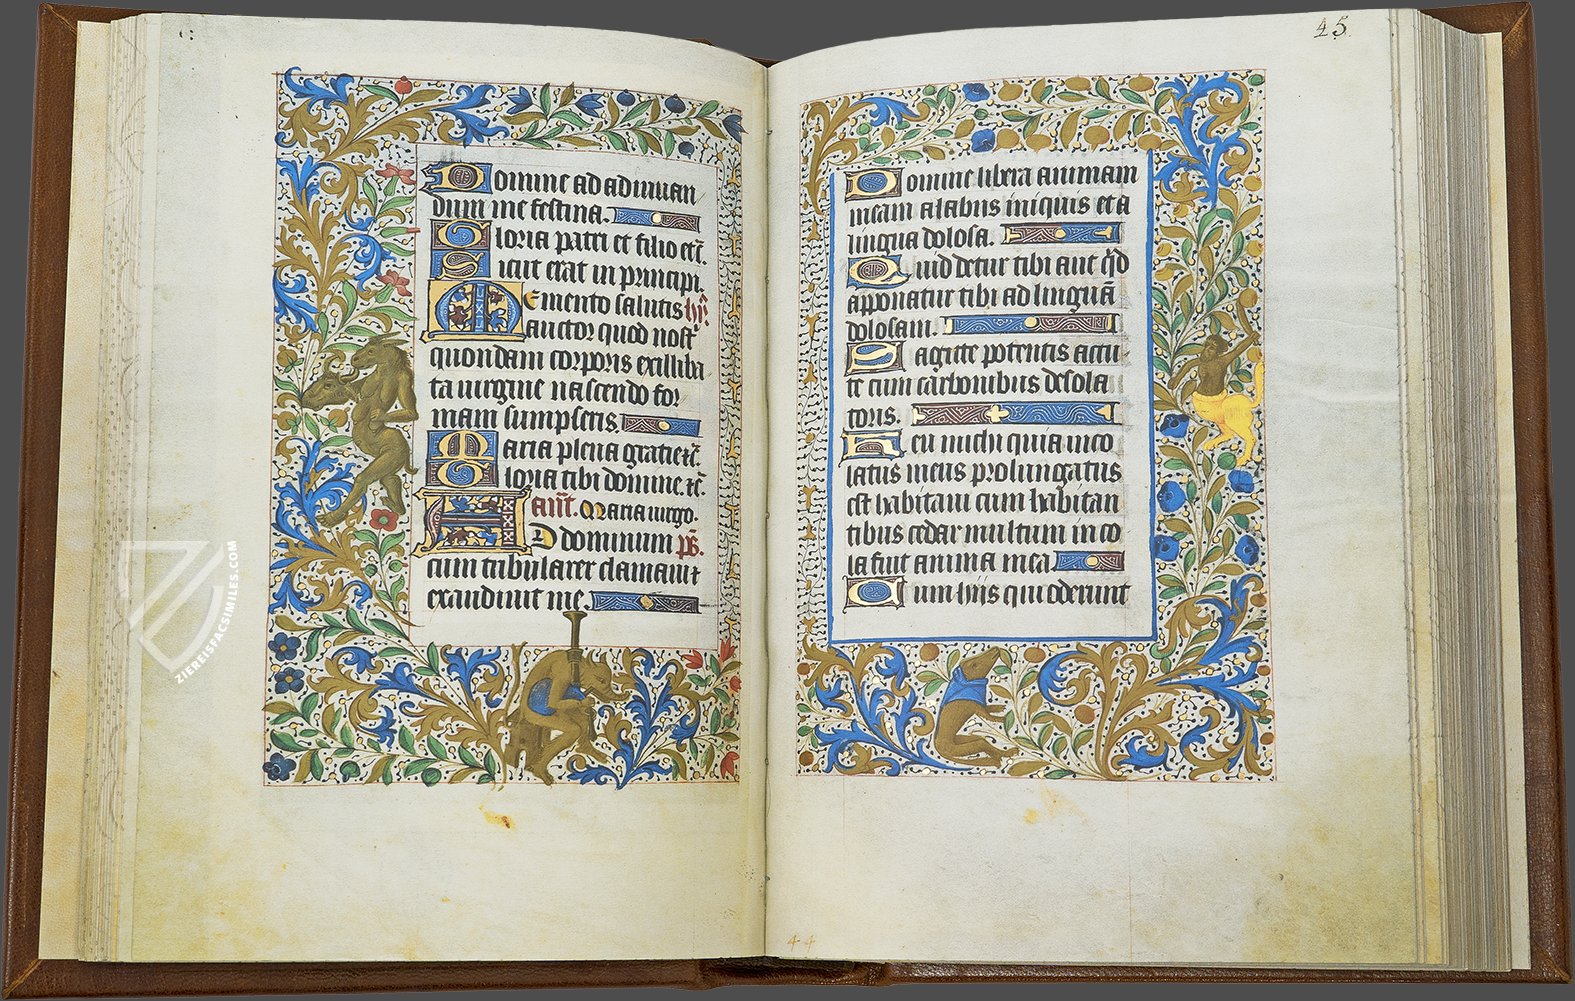 Domine ad adiuuan
dum me festina.
Gloria patri et filio etc̄.
Sicut erat in principi.
Memento salutis hȳ.
auctor quod nostͬ
quondam corporis exilliba
ta uirgine nascendo for
mam sumpseris.
Maria plena gratie ⁊c̄.
Gloria tibi domine. ⁊c̄.
añt. Maria uirgo.
Ad dominum p̄s.
cum tribularer clamaui ⁊
exaudiuit me.
45
Domine libera animam
meam a labiis iniquis et a
lingua dolosa.
Quid detur tibi aut qͥd
apponatur tibi ad linguā
dolosam.
Sagitte potentis acu
te cum carbonibus desola
toris.
Heu michi quia inco
latus meus prolungatus
est habitaui cum habitan
tibus cedar multum inco
la fuit anima mea.
Cum hiis qui oderunt
44
ZIEREISFACSIMILES.COM